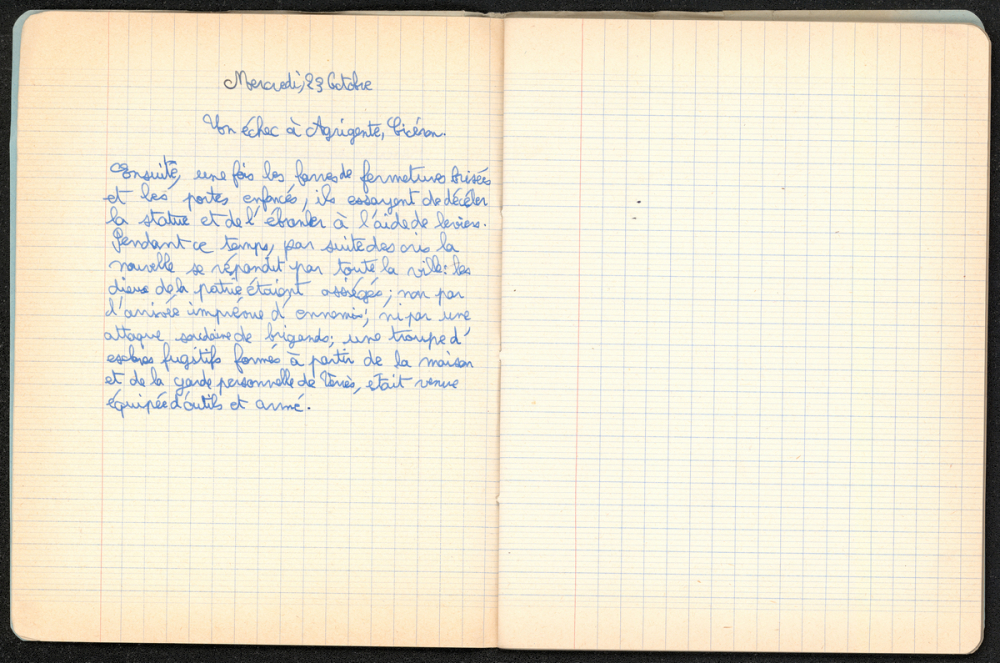 Mercredi, 23 Octobre
Un échec à Agrigente, Cicéron.
Ensuite, une fois les barres de fermetures brisées
et les portes enfoncés, ils essayent de décéler
la statue et de l'ébranler à l'aide de leviers.
Pendant ce temps, par suite des cris la
nouvelle se répandit par toute la ville: les
dieux de la patrie étaient assiégés; non par
l'arrivée imprévue d'ennemis; ni par une
attaque soudaine de brigands; une troupe d'
esclaves fugitifs formés à partir de la maison
et de la garde personnelle de Verrès, était venue
équipée d'outils et armé.